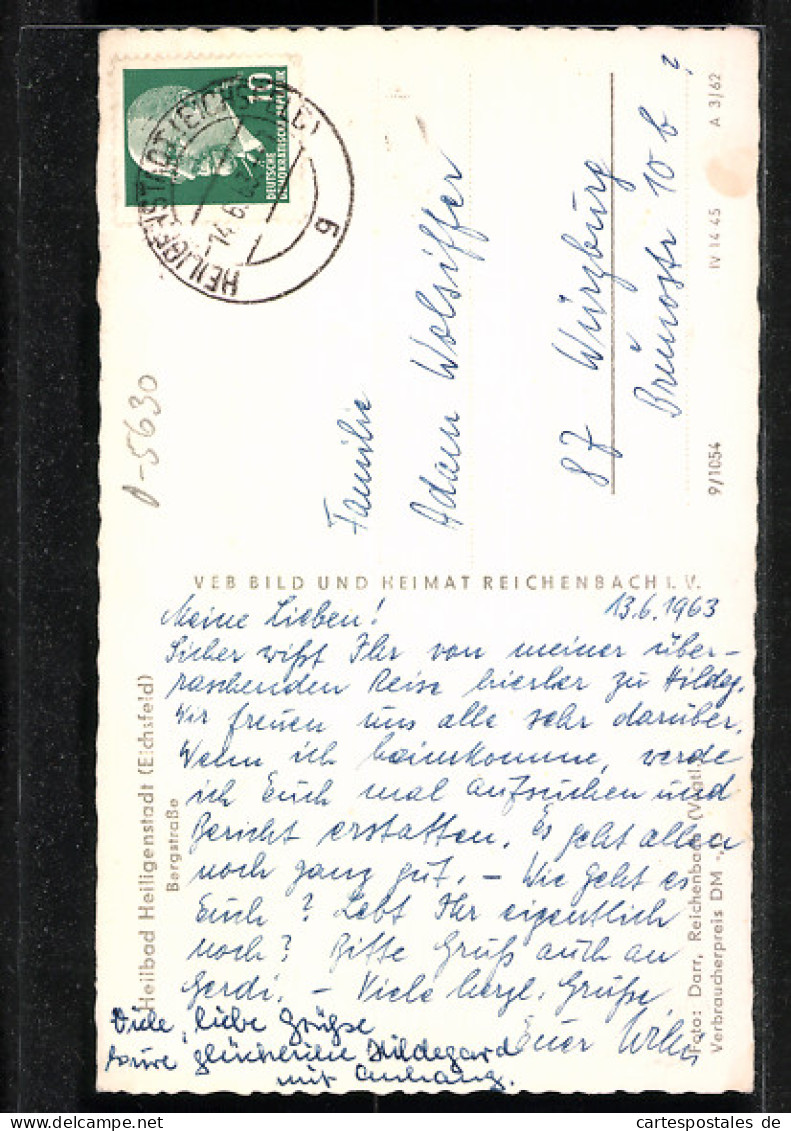 10
DEUTSCHE
DEMOKRATISCHE REPUBLIK
HEILIGENSTADT (EICHSFELD)
14.6.63
6
A 3/62
IV 14 45
9/1054
D-5630
Familie
Adam Wolsiffer
87 Würzburg
Brunostr 10 b ?
VEB BILD UND HEIMAT REICHENBACH I. V.
Heilbad Heiligenstadt (Eichsfeld)
Bergstraße
13.6.1963
Meine Lieben!
Sicher wißt Ihr von meiner über-
raschenden Reise hierher zu Hildeg.
Wir freuen uns alle sehr darüber.
Wenn ich heimkomme, werde
ich Euch mal aufsuchen und
Bericht erstatten. Es geht allen
noch ganz gut. - Wie geht es
Euch? Lebt Ihr eigentlich
noch? Bitte Gruß auch an
Gerdi. - Viele herzl. Grüße
Euer
Viele, liebe Grüße
Eure glückliche Hildegard
mit Anhang.
Foto: Darr, Reichenbach (Vogtl.)
Verbraucherpreis DM
cartespostales.de